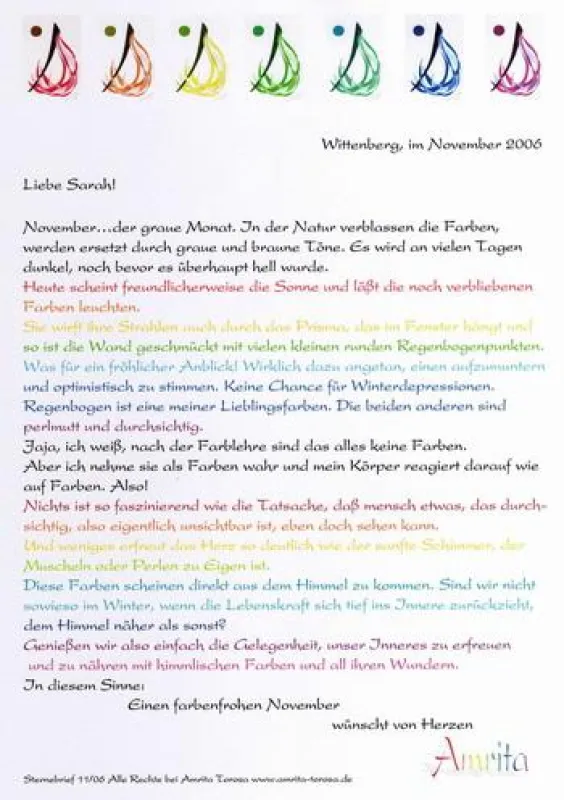 Wittenberg, im November 2006
Liebe Sarah!
November...der graue Monat. In der Natur verblassen die Farben,
werden ersetzt durch graue und braune Töne. Es wird an vielen Tagen
dunkel, noch bevor es überhaupt hell wurde.
Heute scheint freundlicherweise die Sonne und läßt die noch verbliebenen
Farben leuchten.
Sie wirft ihre Strahlen auch durch das Prisma, das im Fenster hängt und
so ist die Wand geschmückt mit vielen kleinen runden Regenbogenpunkten.
Was für ein fröhlicher Anblick! Wirklich dazu angetan, einen aufzumuntern
und optimistisch zu stimmen. Keine Chance für Winterdepressionen.
Regenbogen ist eine meiner Lieblingsfarben. Die beiden anderen sind
perlmutt und durchsichtig.
Jaja, ich weiß, nach der Farblehre sind das alles keine Farben.
Aber ich nehme sie als Farben wahr und mein Körper reagiert darauf wie
auf Farben. Also!
Nichts ist so faszinierend wie die Tatsache, daß mensch etwas, das durch-
sichtig, also eigentlich unsichtbar ist, eben doch sehen kann.
Und weniges erfreut das Herz so deutlich wie der sanfte Schimmer, der
Muscheln oder Perlen zu Eigen ist.
Diese Farben scheinen direkt aus dem Himmel zu kommen. Sind wir nicht
sowieso im Winter, wenn die Lebenskraft sich tief ins Innere zurückzieht,
dem Himmel näher als sonst?
Genießen wir also einfach die Gelegenheit, unser Inneres zu erfreuen
und zu nähren mit himmlischen Farben und all ihren Wundern.
In diesem Sinne:
Einen farbenfrohen November
wünscht von Herzen
Amrita
Sternebrief 11/06 Alle Rechte bei Amrita Torosa www.amrita-torosa.de